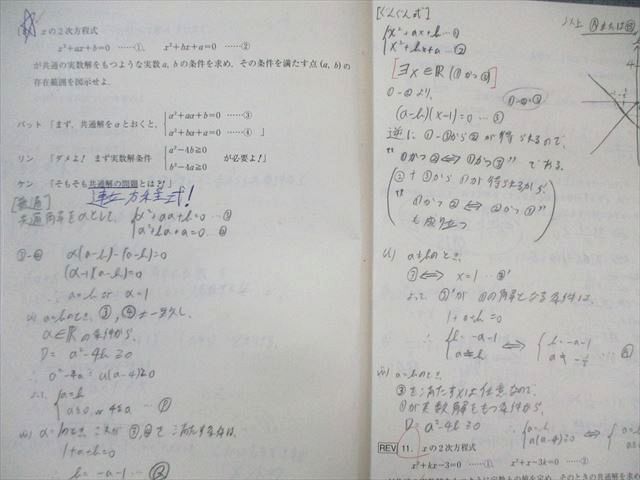 xの2次方程式
x²+ax+b=0 ……①, x²+bx+a=0 ……②
が共通の実数解をもつような実数a, bの条件を求め, その条件を満たす点(a, b)の
存在範囲を図示せよ.
バット「まず, 共通解をαとおくと, { α²+aα+b=0 ……③
α²+bα+a=0 ……④ 」
リン「ダメよ! まず実数解条件 { a²−4b≧0
b²−4a≧0 が必要よ!」
ケン「そもそも共通解の問題とは?!」
連立方程式!
[普通]
共通解をαとして, { α²+aα+b=0 …③
α²+bα+a=0 …④
③−④ α(a−b)−(a−b)=0
(α−1)(a−b)=0
∴ a=b or α=1
i) a=bのとき, ③, ④は一致し,
α∈Rの条件から,
D = a²−4b≧0
∴ a²−4a = a(a−4)≧0
よって { a=b
a≦0, or 4≦a
1+a+b=0
∴ b=−a−1
[ぐんぐん式]
{ x²+ax+b …①
x²+bx+a …②
[∃x∈R (①かつ②)]
①−②より,
①−②=③
(a−b)(x−1)=0 …③
逆に ①−③から②が得られるので,
"①かつ② ⇔ ①かつ③" である.
( ②+③から①が得られるから
"①かつ② ⇔ ②かつ③"
も成り立つ )
i) a≠bのとき,
③ ⇔ x=1 …③'
よって ③'が①の解となる条件は,
1+a+b=0
∴ { b=−a−1
a≠b ⇔ { b=−a−1
a≠−½
ii) a=bのとき,
③をみたすxは任意なので,
①が実数解をもつ条件から,
D=a²−4b≧0
∴ { a=b
a(a−4)≧0 ⇔
REV 11. xの2次方程式
x²+kx−3=0 ……①, x²+x−3k=0 ……②